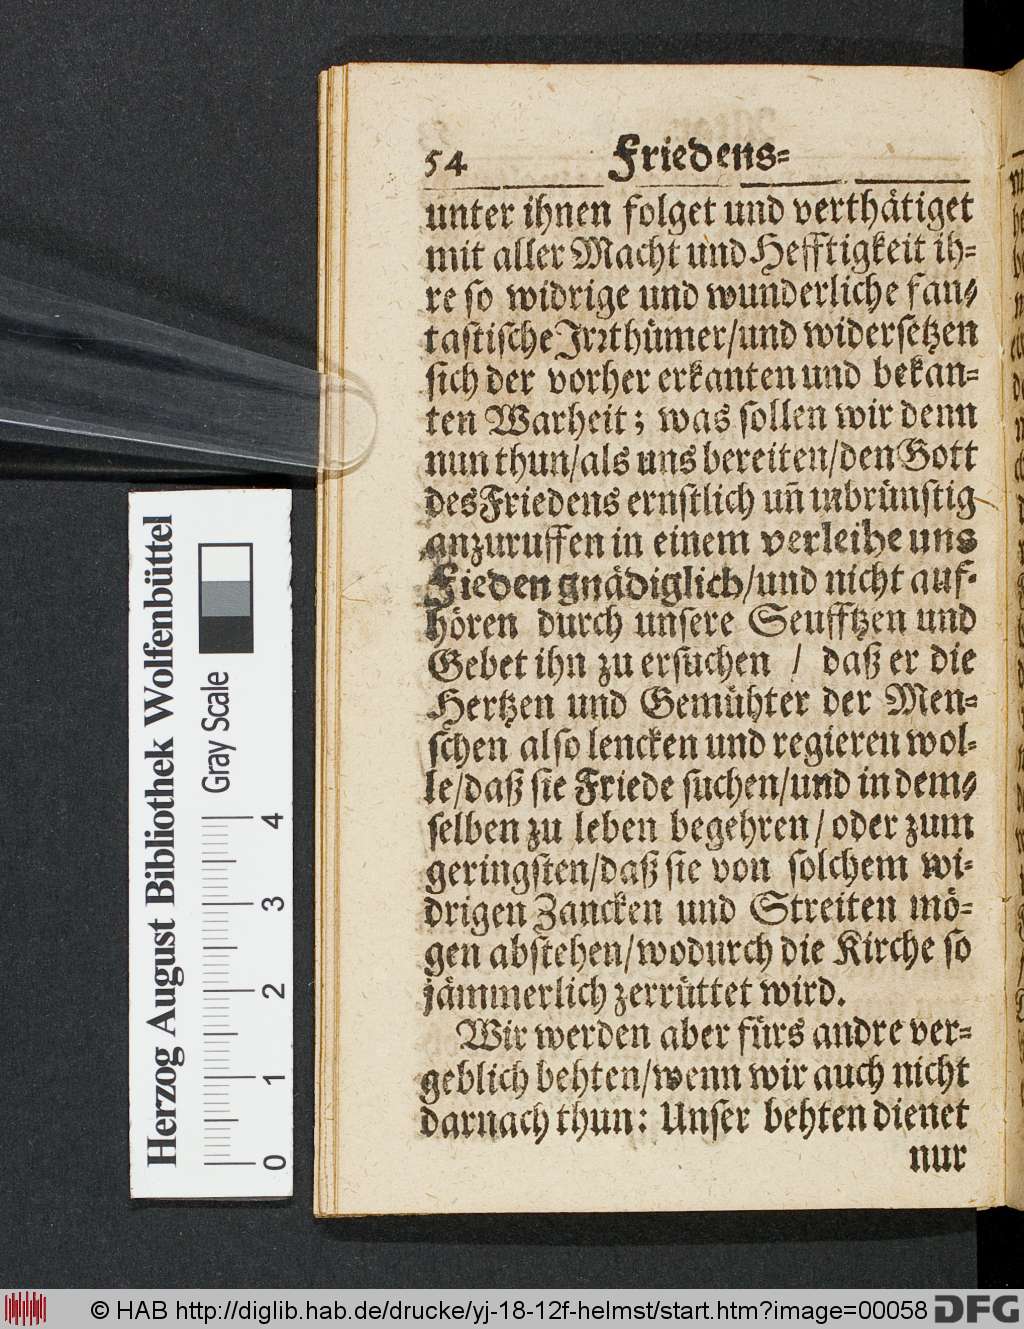 54 Friedens-
unter ihnen folget und verthätiget
mit aller Macht und Hefftigkeit ih-
re so widrige und wunderliche fan-
tastische Irrthümer/und widersetzen
sich der vorher erkanten und bekan-
ten Warheit; was sollen wir denn
nun thun/als uns bereiten/den Gott
des Friedens ernstlich uñ inbrünstig
anzuruffen in einem verleihe uns
Fieden gnädiglich/und nicht auf-
hören durch unsere Seufftzen und
Gebet ihn zu ersuchen / daß er die
Hertzen und Gemühter der Men-
schen also lencken und regieren wol-
le/daß sie Friede suchen/und in dem-
selben zu leben begehren/ oder zum
geringsten/daß sie von solchem wi-
drigen Zancken und Streiten mö-
gen abstehen/wodurch die Kirche so
jämmerlich zerrüttet wird.
Wir werden aber fürs andre ver-
geblich behten/wenn wir auch nicht
darnach thun: Unser behten dienet
nur
Herzog August Bibliothek Wolfenbüttel
Gray Scale
0 1 2 3 4
© HAB http://diglib.hab.de/drucke/yj-18-12f-helmst/start.htm?image=00058 DFG